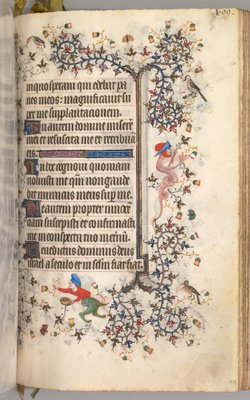 inquo speraui qui edebat pa
nes meos: magnificauit su
per me supplantacionem.
Tu autem domine misere
mei et resuscita me et retribuã
eis.
In hoc cognoui quoniam
voluisti me qm̃ non gaude
bit inimicus meus sup me.
Me autem propter innocẽ
ciam suscepisti et confirmasti
me inconspectu tuo ineternũ.
Benedictus dominus deus
israel a seculo et in sclm fiat fiat.